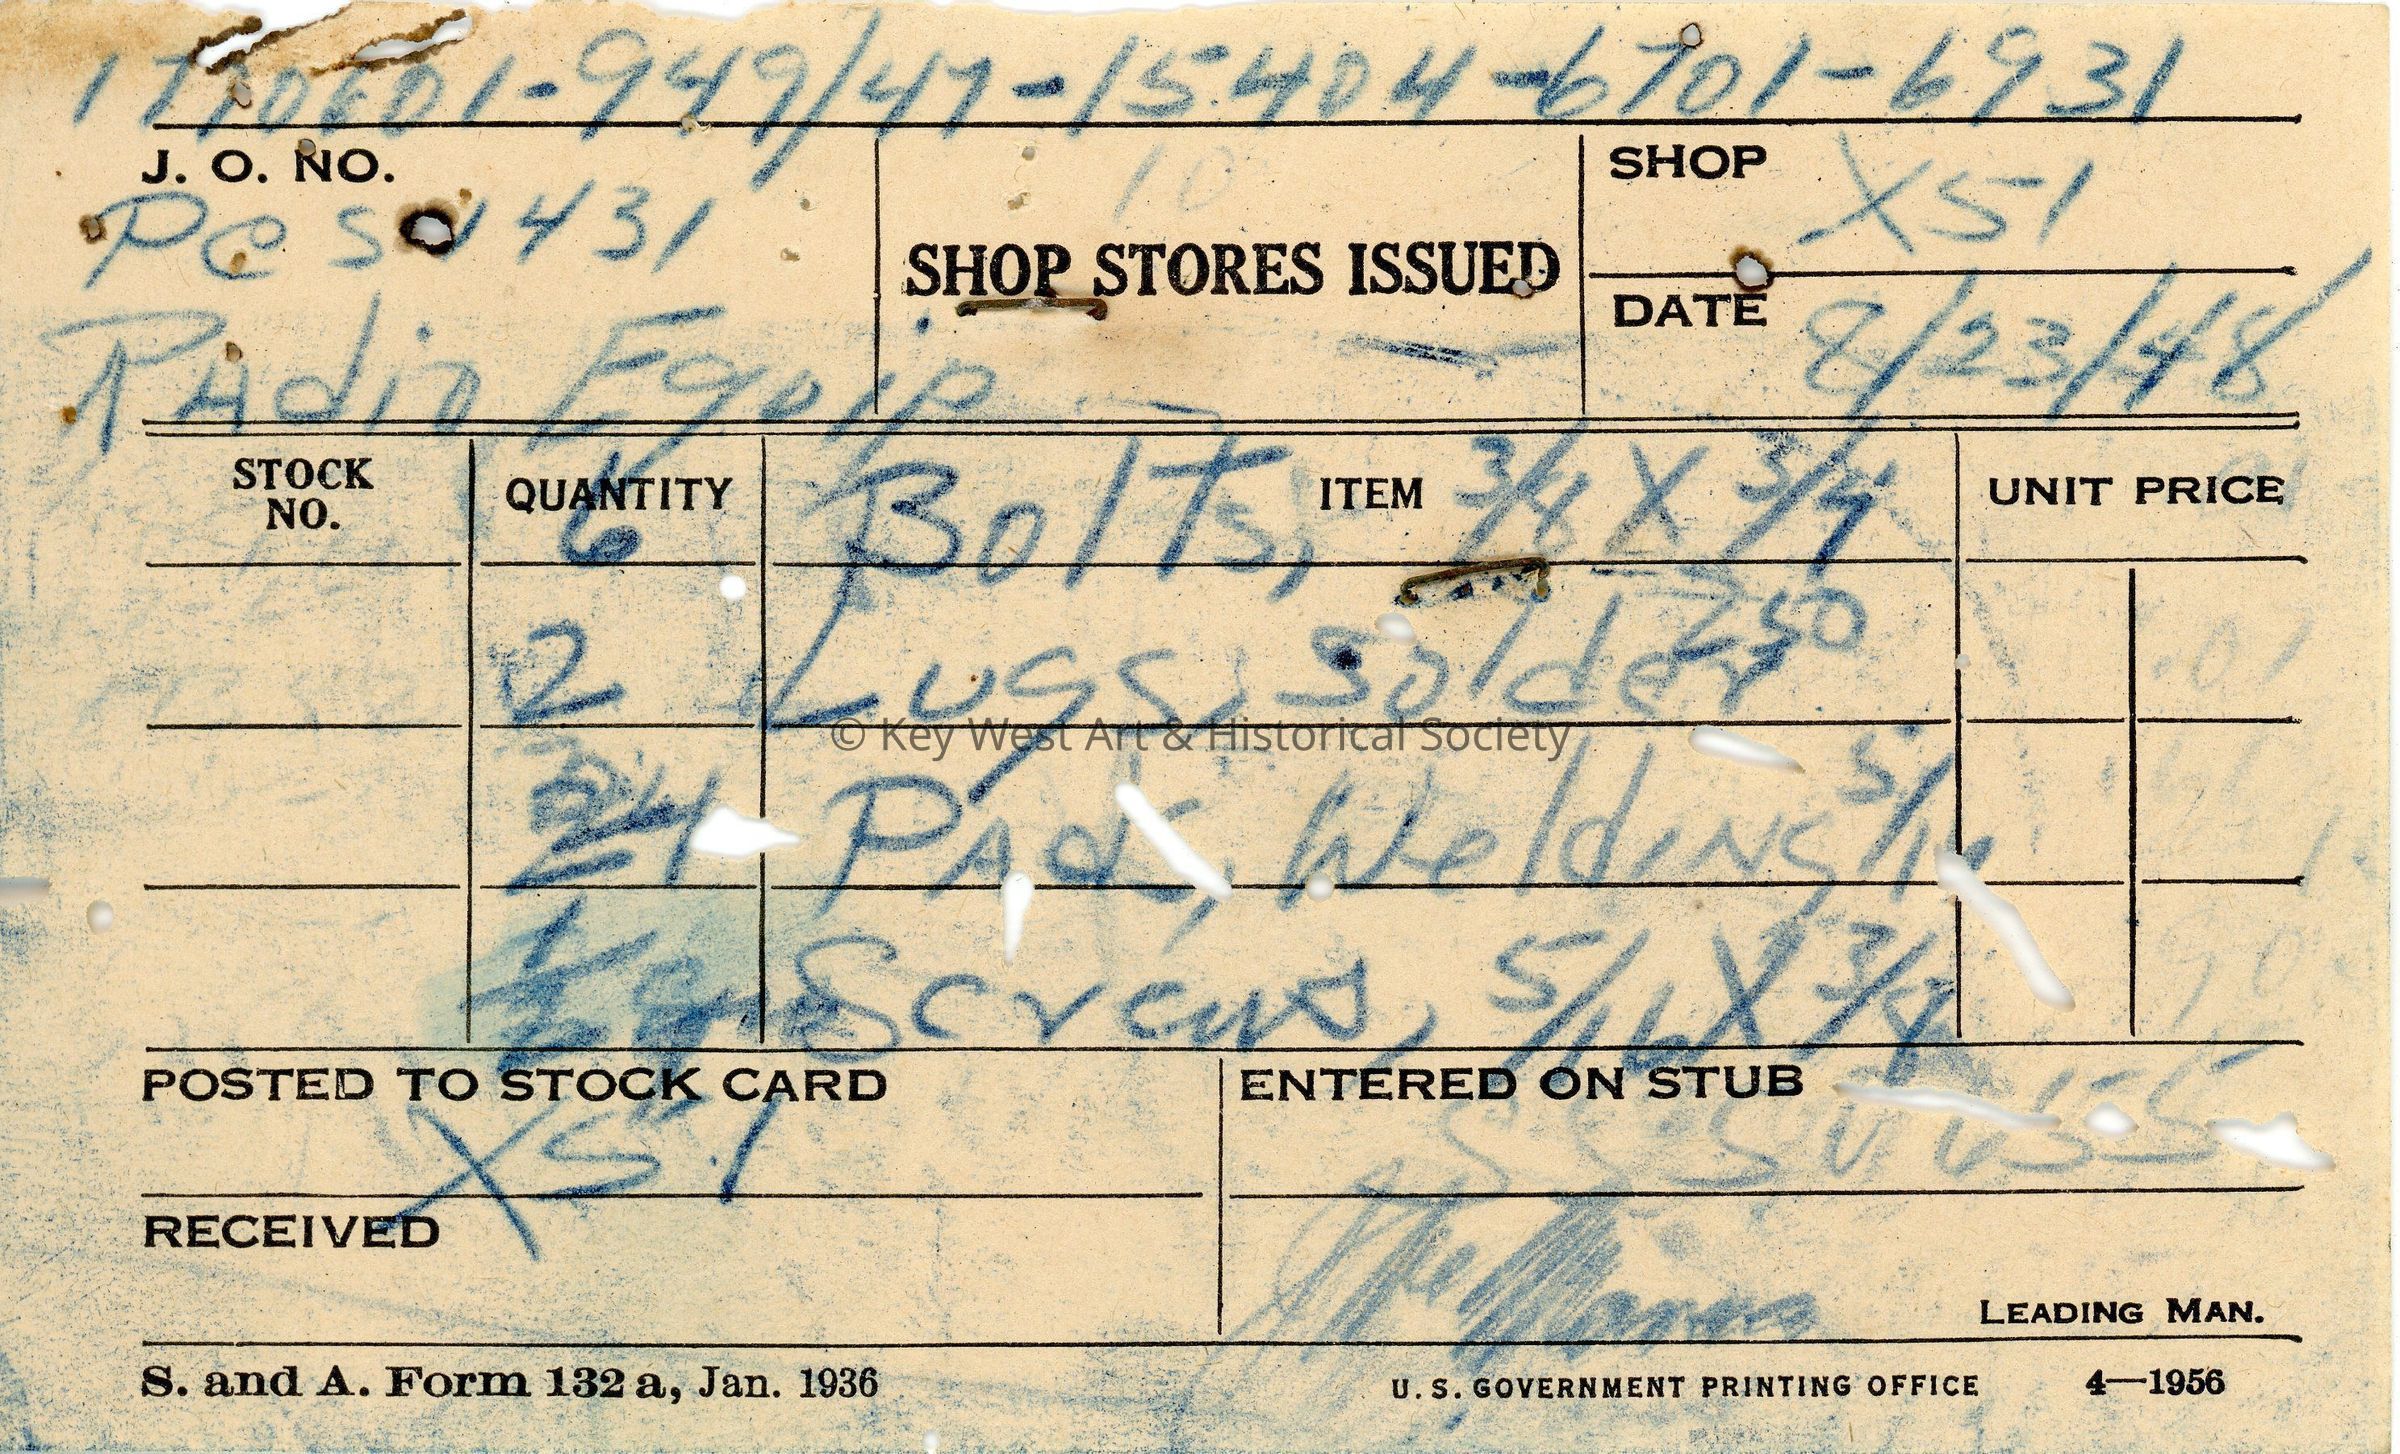 1770601-949/47-15404-6701-6931
J. O. NO.
PCS 1431
Radio Equip
10
SHOP STORES ISSUED
SHOP X51
DATE 8/23/48
STOCK NO.
QUANTITY
ITEM
UNIT PRICE
6 Bolts, 3/4 X 3/4
2 Lugs, Solder 250
24 Pads, Welding 5/16
Screws, 5/16 X 3/4
© Key West Art & Historical Society
POSTED TO STOCK CARD
X51
ENTERED ON STUB
RECEIVED
LEADING MAN.
S. and A. Form 132 a, Jan. 1936
U. S. GOVERNMENT PRINTING OFFICE 4—1956